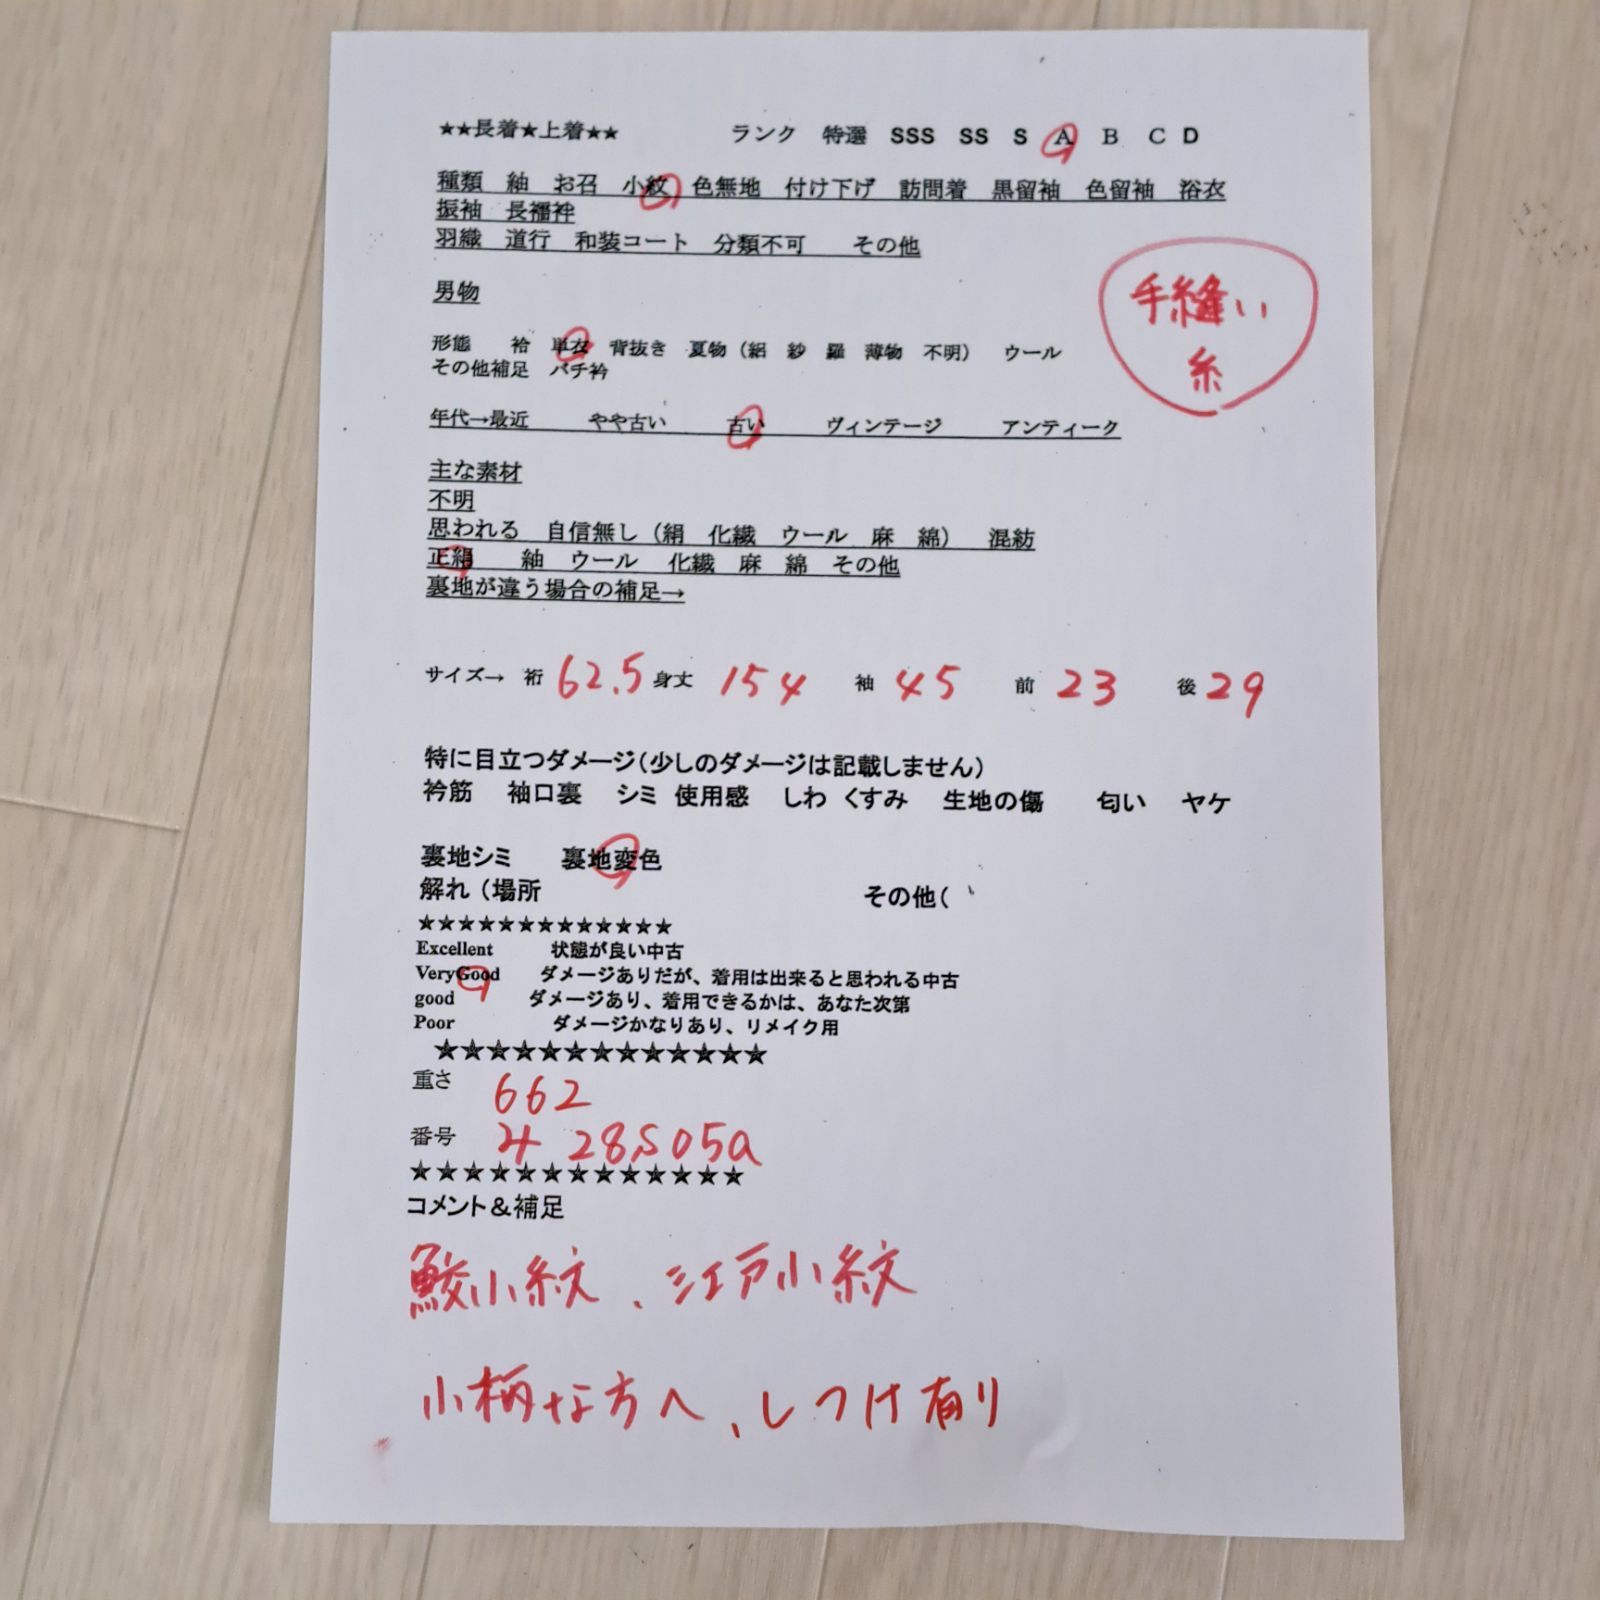 ★★長着★上着★★ ランク 特選 SSS SS S A B C D
種類 紬 お召 小紋 色無地 付け下げ 訪問着 黒留袖 色留袖 浴衣
振袖 長襦袢
羽織 道行 和装コート 分類不可 その他
手縫い
糸
男物
形態 袷 単衣 背抜き 夏物（絽 紗 羅 薄物 不明） ウール
その他補足 バチ衿
年代→最近 やや古い 古い ヴィンテージ アンティーク
主な素材
不明
思われる 自信無し（絹 化繊 ウール 麻 綿） 混紡
正絹 紬 ウール 化繊 麻 綿 その他
裏地が違う場合の補足→
サイズ→ 裄 62.5 身丈 154 袖 45 前 23 後 29
特に目立つダメージ（少しのダメージは記載しません）
衿筋 袖口裏 シミ 使用感 しわ くすみ 生地の傷 匂い ヤケ
裏地シミ 裏地変色
解れ（場所 その他（
★★★★★★★★★★★★★
Excellent 状態が良い中古
VeryGood ダメージありだが、着用は出来ると思われる中古
good ダメージあり、着用できるかは、あなた次第
Poor ダメージかなりあり、リメイク用
★★★★★★★★★★★★★
重さ 662
番号 4 28S05a
★★★★★★★★★★★★★
コメント＆補足
鮫小紋、江戸小紋
小柄な方へ、しつけ有り